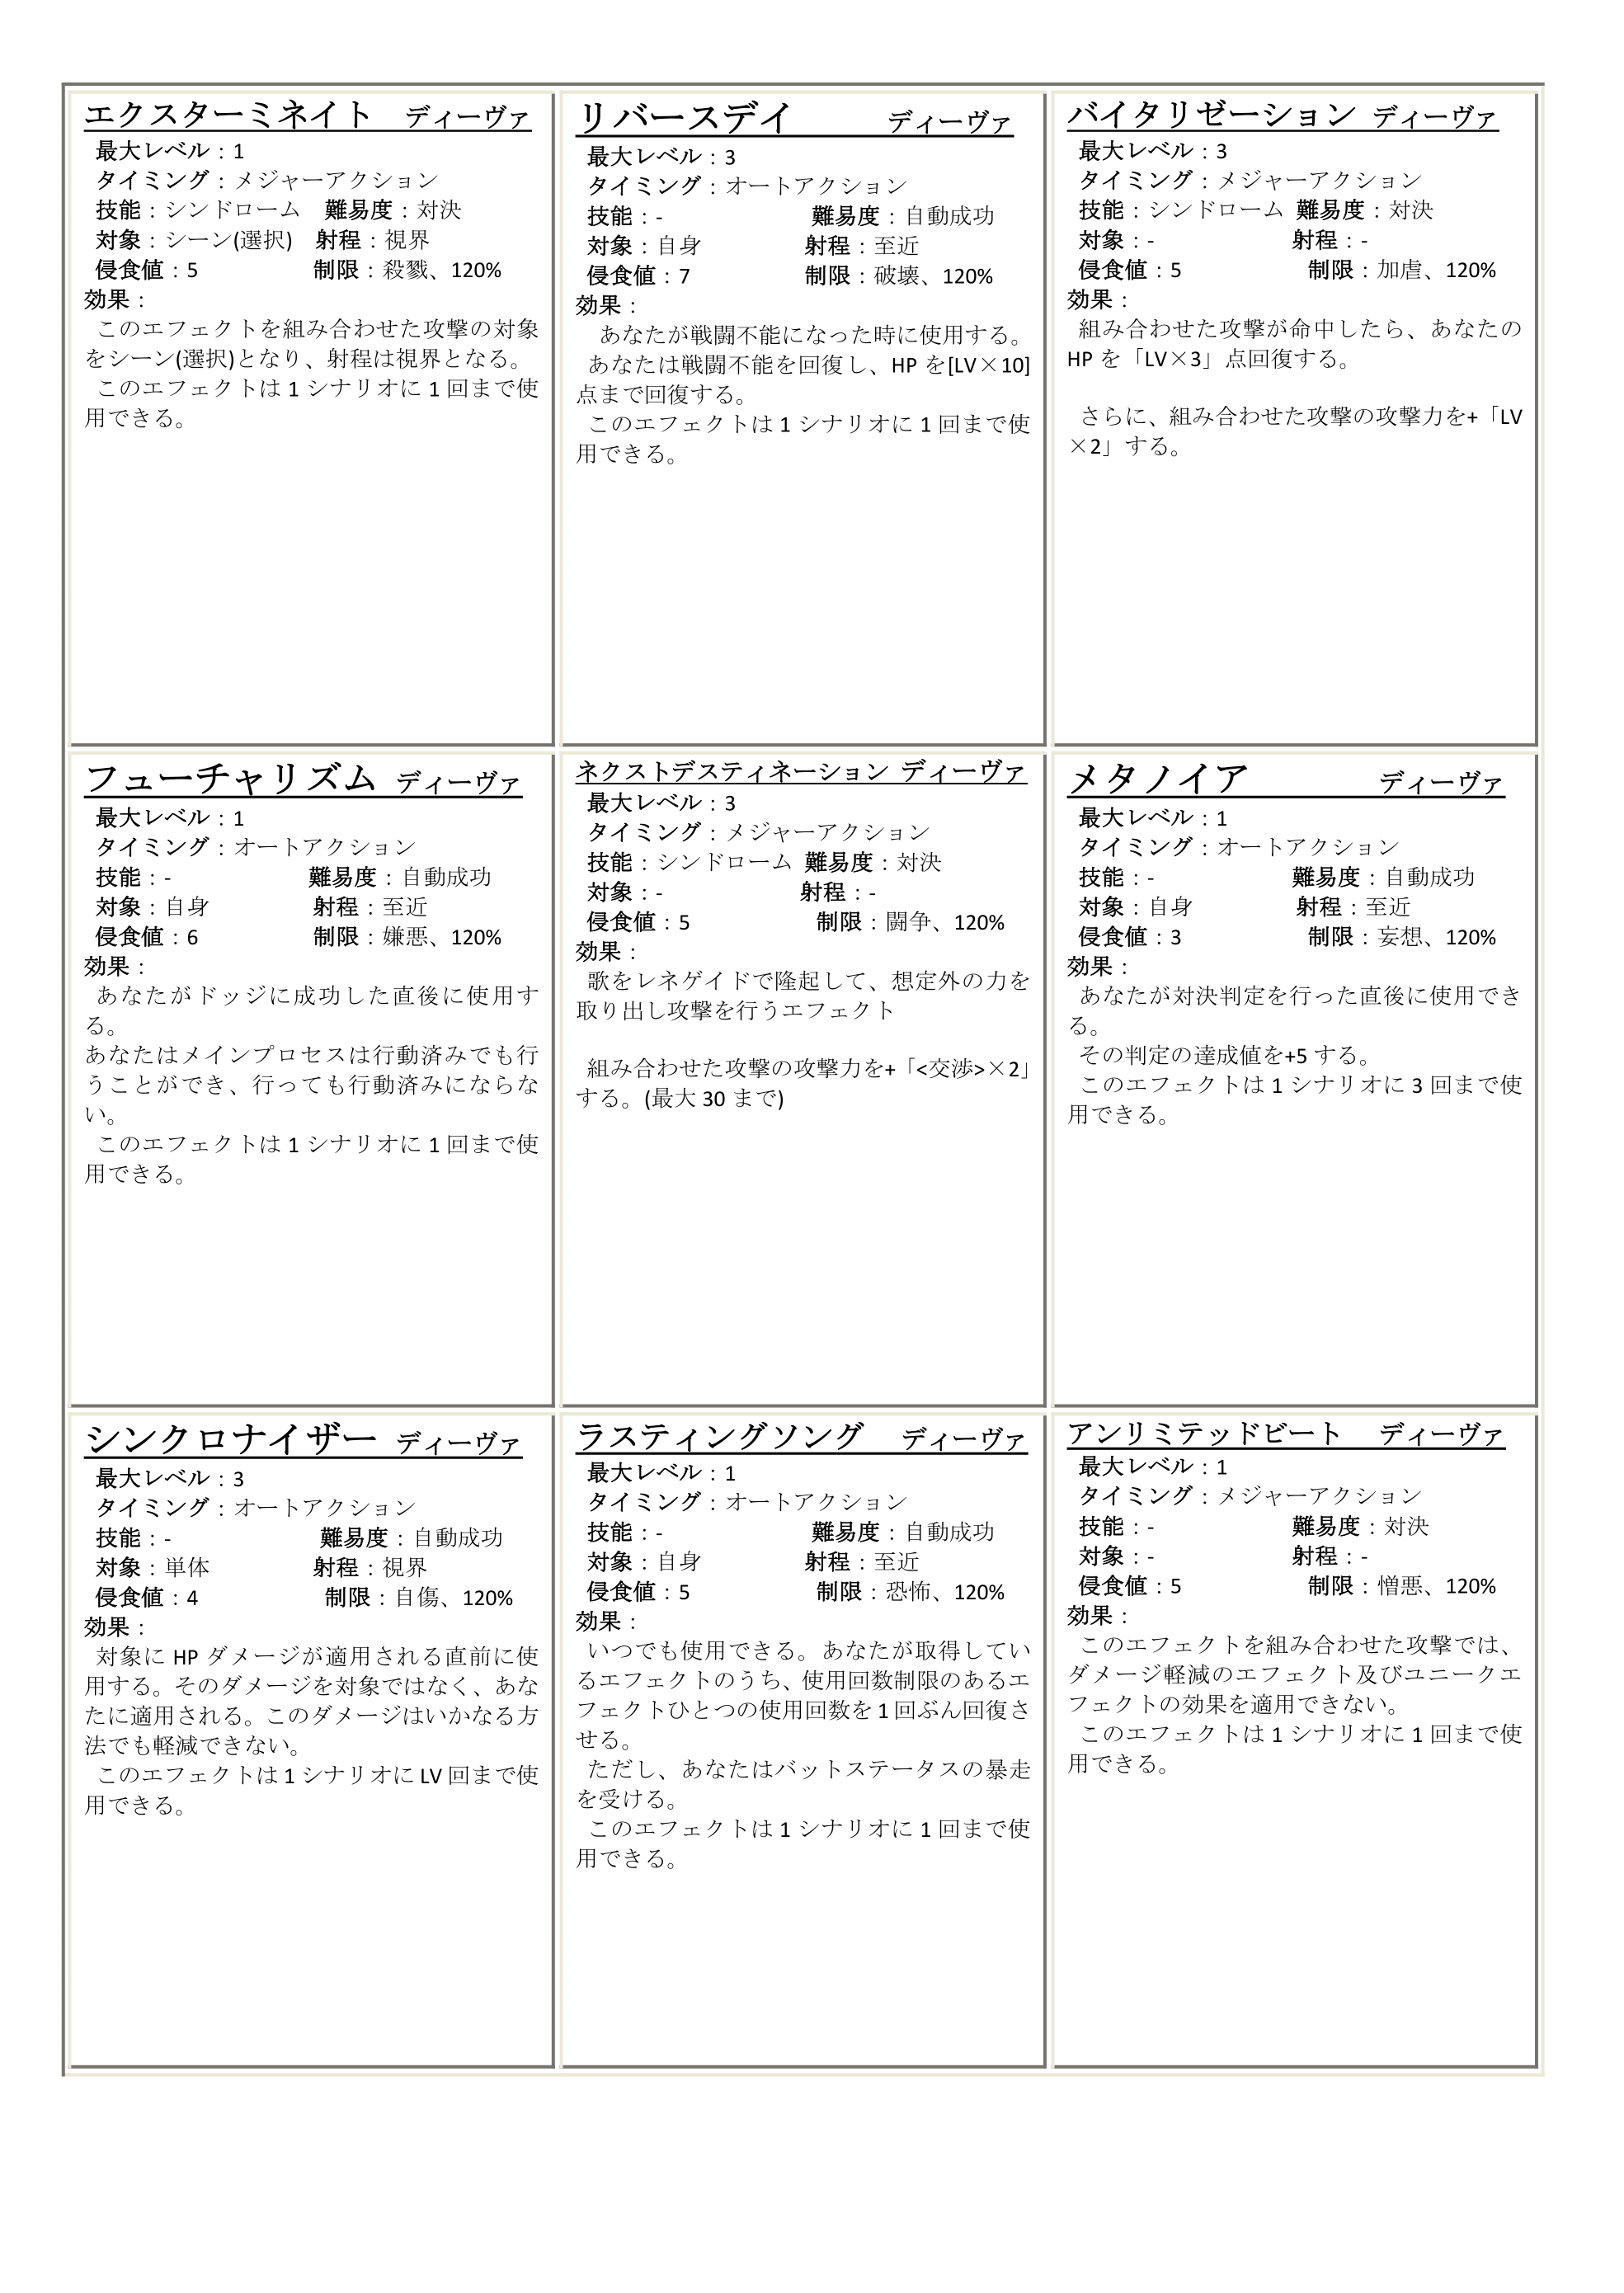 エクスターミネイト　ディーヴァ
最大レベル：1
タイミング：メジャーアクション
技能：シンドローム　難易度：対決
対象：シーン(選択)　射程：視界
侵食値：5　制限：殺戮、120%
効果：
このエフェクトを組み合わせた攻撃の対象
をシーン(選択)となり、射程は視界となる。
このエフェクトは1シナリオに1回まで使
用できる。
リバースデイ　ディーヴァ
最大レベル：3
タイミング：オートアクション
技能：-　難易度：自動成功
対象：自身　射程：至近
侵食値：7　制限：破壊、120%
効果：
あなたが戦闘不能になった時に使用する。
あなたは戦闘不能を回復し、HPを[LV×10]
点まで回復する。
このエフェクトは1シナリオに1回まで使
用できる。
バイタリゼーション ディーヴァ
最大レベル：3
タイミング：メジャーアクション
技能：シンドローム 難易度：対決
対象：-　射程：-
侵食値：5　制限：加虐、120%
効果：
組み合わせた攻撃が命中したら、あなたの
HPを「LV×3」点回復する。
さらに、組み合わせた攻撃の攻撃力を+「LV
×2」する。
フューチャリズム ディーヴァ
最大レベル：1
タイミング：オートアクション
技能：-　難易度：自動成功
対象：自身　射程：至近
侵食値：6　制限：嫌悪、120%
効果：
あなたがドッジに成功した直後に使用す
る。
あなたはメインプロセスは行動済みでも行
うことができ、行っても行動済みにならな
い。
このエフェクトは1シナリオに1回まで使
用できる。
ネクストデスティネーション ディーヴァ
最大レベル：3
タイミング：メジャーアクション
技能：シンドローム 難易度：対決
対象：-　射程：-
侵食値：5　制限：闘争、120%
効果：
歌をレネゲイドで隆起して、想定外の力を
取り出し攻撃を行うエフェクト
組み合わせた攻撃の攻撃力を+「<交渉>×2」
する。(最大30まで)
メタノイア　ディーヴァ
最大レベル：1
タイミング：オートアクション
技能：-　難易度：自動成功
対象：自身　射程：至近
侵食値：3　制限：妄想、120%
効果：
あなたが対決判定を行った直後に使用でき
る。
その判定の達成値を+5する。
このエフェクトは1シナリオに3回まで使
用できる。
シンクロナイザー ディーヴァ
最大レベル：3
タイミング：オートアクション
技能：-　難易度：自動成功
対象：単体　射程：視界
侵食値：4　制限：自傷、120%
効果：
対象にHPダメージが適用される直前に使
用する。そのダメージを対象ではなく、あな
たに適用される。このダメージはいかなる方
法でも軽減できない。
このエフェクトは1シナリオにLV回まで使
用できる。
ラスティングソング　ディーヴァ
最大レベル：1
タイミング：オートアクション
技能：-　難易度：自動成功
対象：自身　射程：至近
侵食値：5　制限：恐怖、120%
効果：
いつでも使用できる。あなたが取得してい
るエフェクトのうち、使用回数制限のあるエ
フェクトひとつの使用回数を1回ぶん回復さ
せる。
ただし、あなたはバットステータスの暴走
を受ける。
このエフェクトは1シナリオに1回まで使
用できる。
アンリミテッドビート　ディーヴァ
最大レベル：1
タイミング：メジャーアクション
技能：-　難易度：対決
対象：-　射程：-
侵食値：5　制限：憎悪、120%
効果：
このエフェクトを組み合わせた攻撃では、
ダメージ軽減のエフェクト及びユニークエ
フェクトの効果を適用できない。
このエフェクトは1シナリオに1回まで使
用できる。